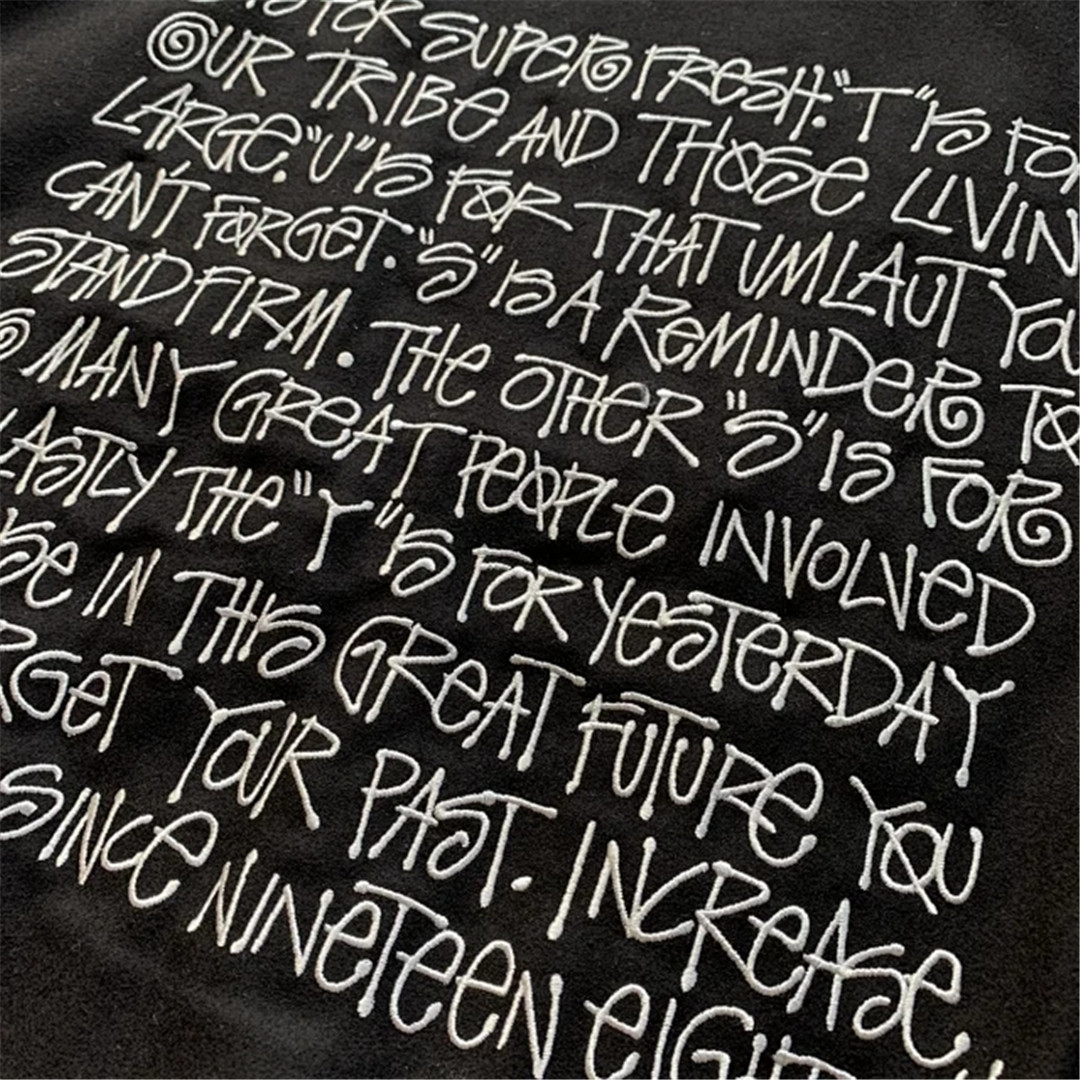 IS FOR SUPER FRESH. "T" IS FOR
OUR TRIBE AND THOSE LIVIN
LARGE. "U" IS FOR THAT UMLAUT YOU
CAN'T FORGET. "S" IS A REMINDER TO
STAND FIRM. THE OTHER "S" IS FOR
SO MANY GREAT PEOPLE INVOLVED
LASTLY THE "Y" IS FOR YESTERDAY
IN THIS GREAT FUTURE YOU
RGET YOUR PAST. INCREASE
SINCE NINETEEN EIGHT